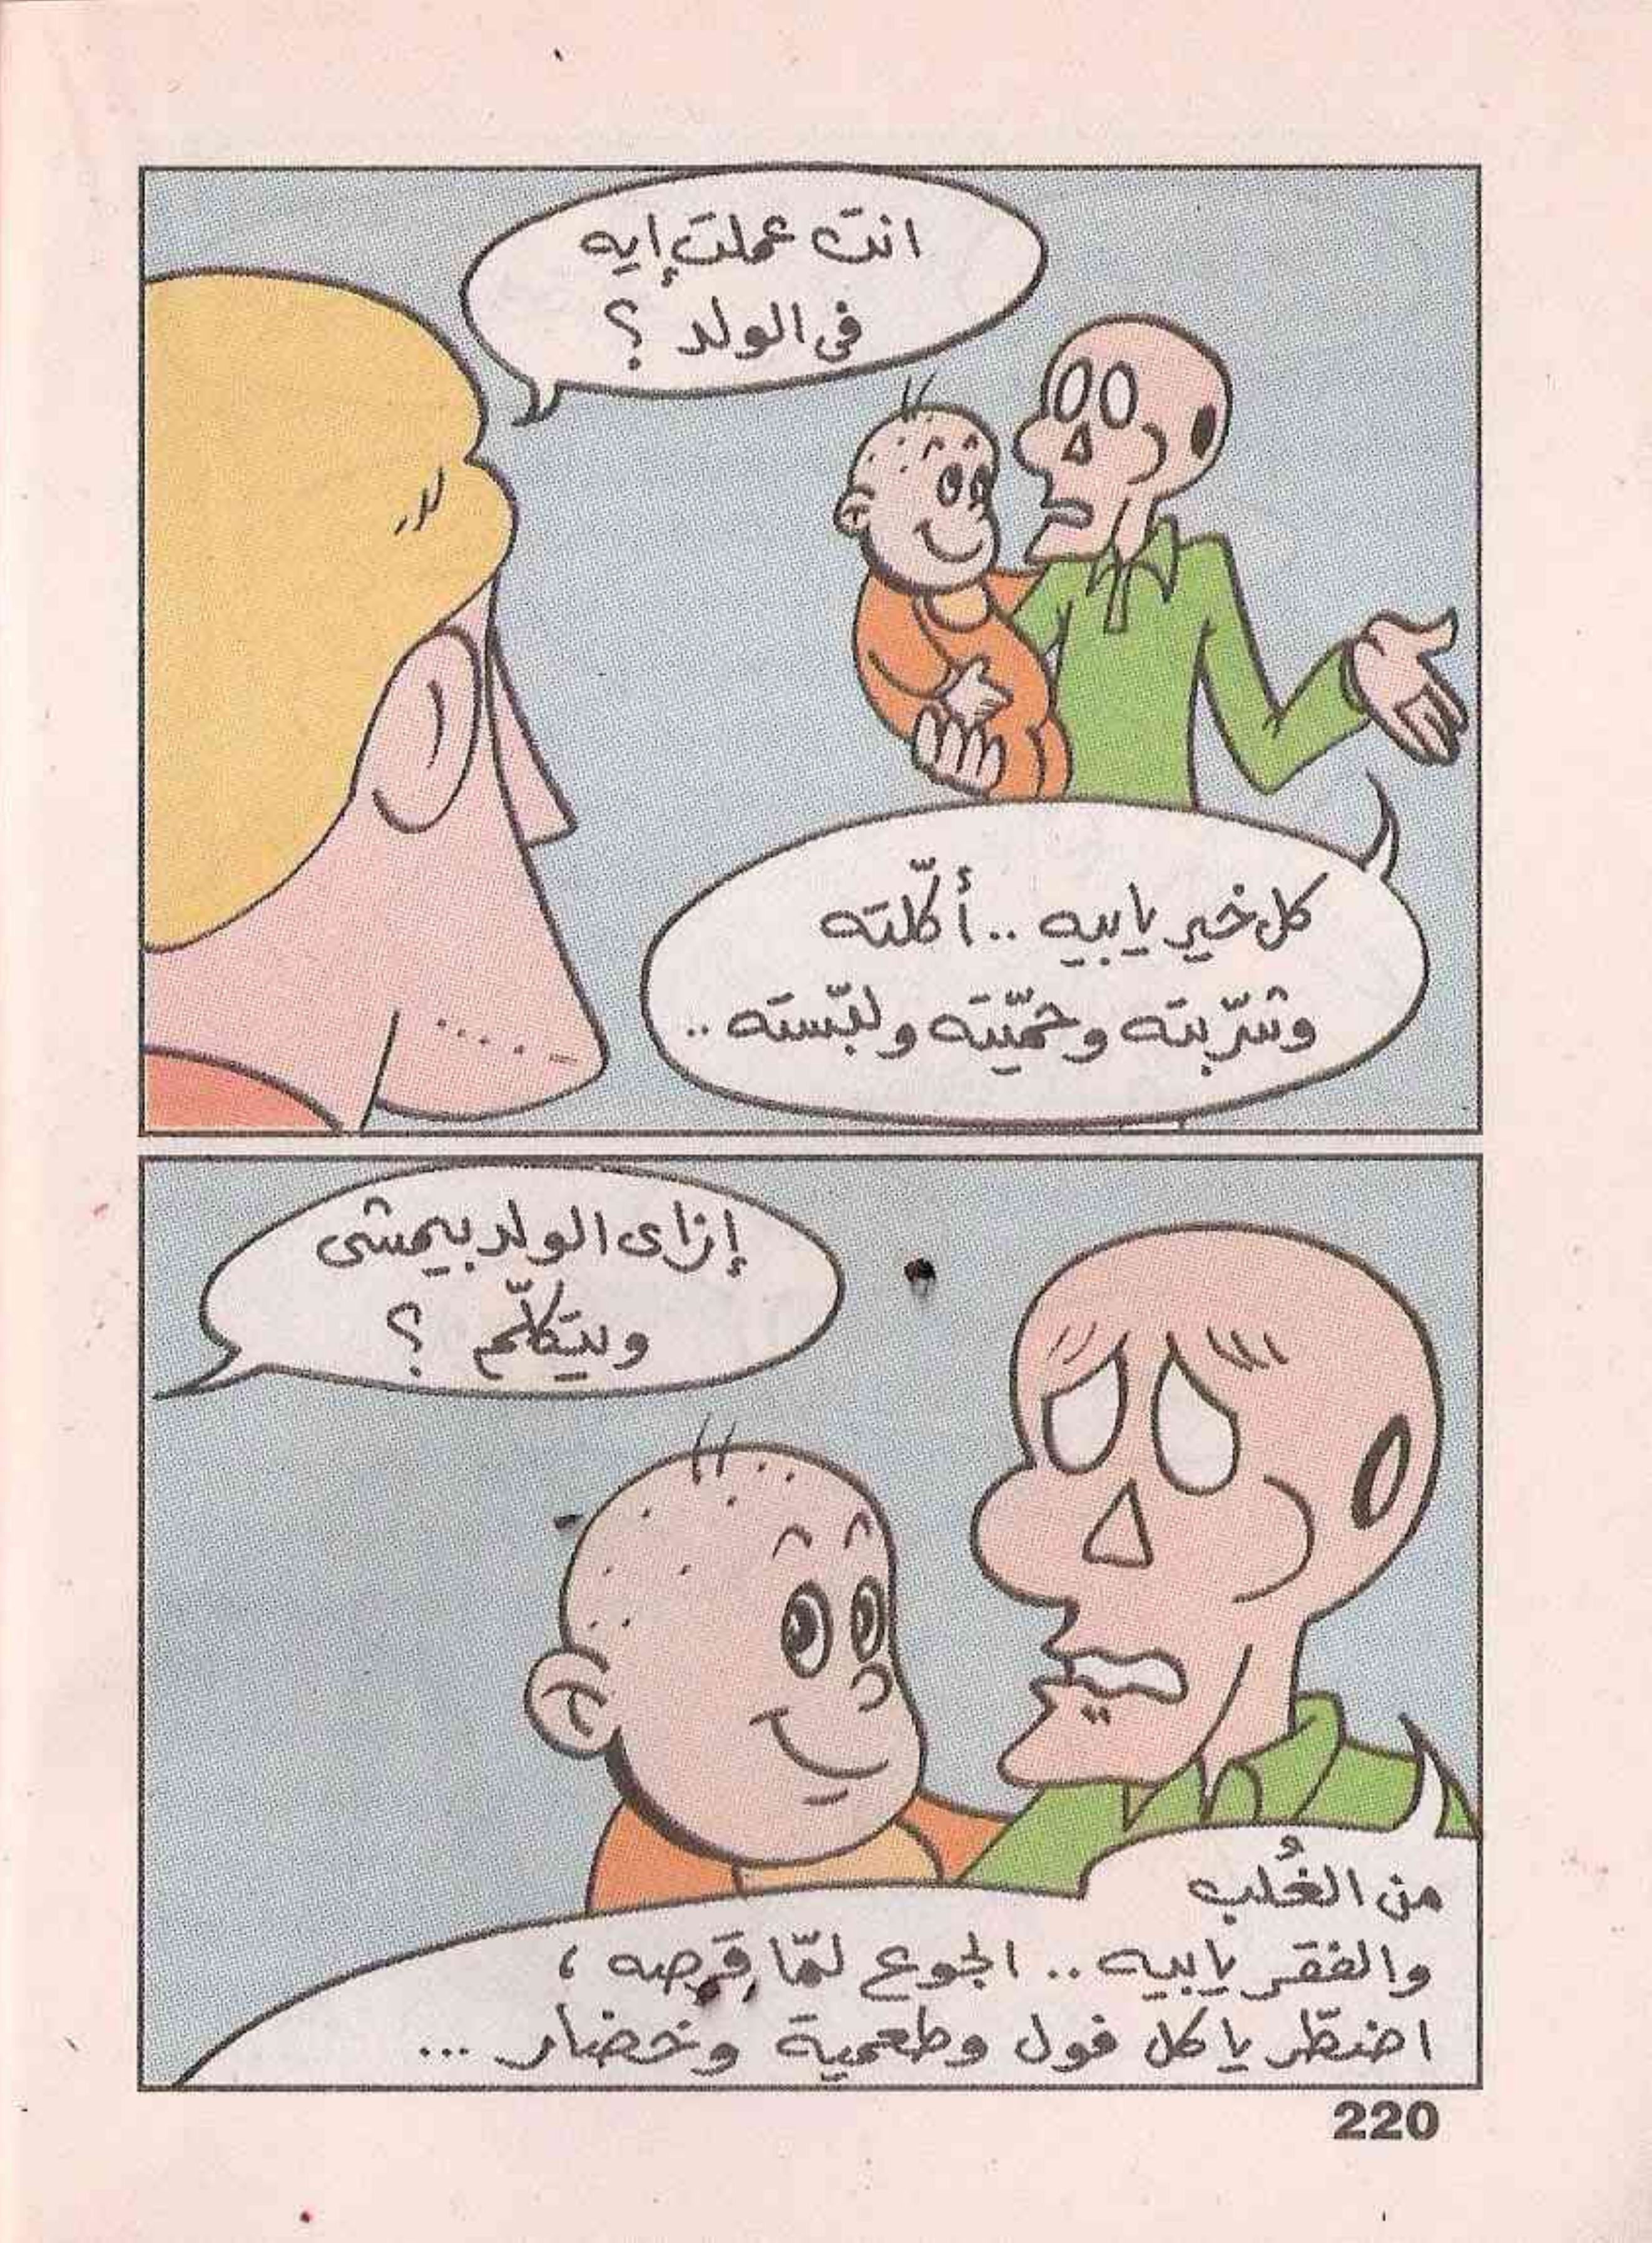 انتَ عملتَ إيه
فى الولد ؟
كل خير يابيه .. أكّلته
وشرّبته وحمّيته ولبّسته ..
إزاى الولد بيمشى
وبيتكلّم ؟
من الغُلب
والفقر يابيه .. الجوع لمّا قَرصه ،
اضطّر ياكل فول وطعمية وخضار ...
220